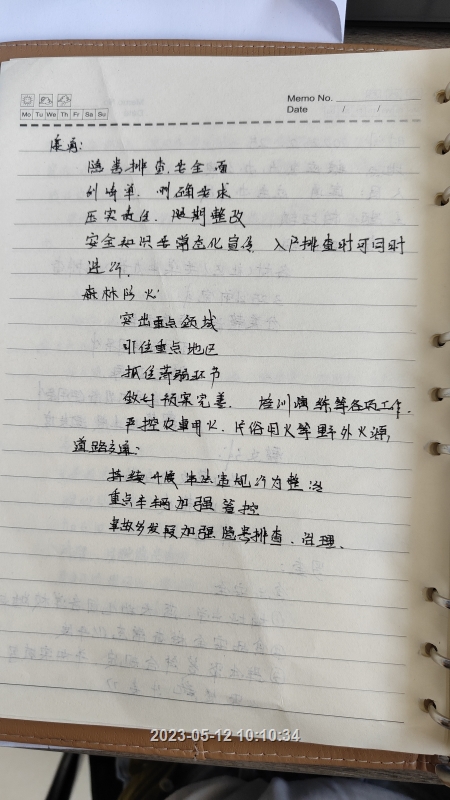 Memo No.
Date / /
Mo Tu We Th Fr Sa Su
隐患排查要全面
列清单,明确要求
压实责任、限期整改
安全知识要常态化宣传、入户排查时可同时
进行.
森林防火:
突出重点领域
盯住重点地区
抓住薄弱环节
做好预案完善、培训演练等各项工作.
严控农事用火、民俗用火等野外火源,
道路交通:
持续开展违法违规行为整治
重点车辆加强管控
事故多发段加强隐患排查、治理、
2023-05-12 10:10:34